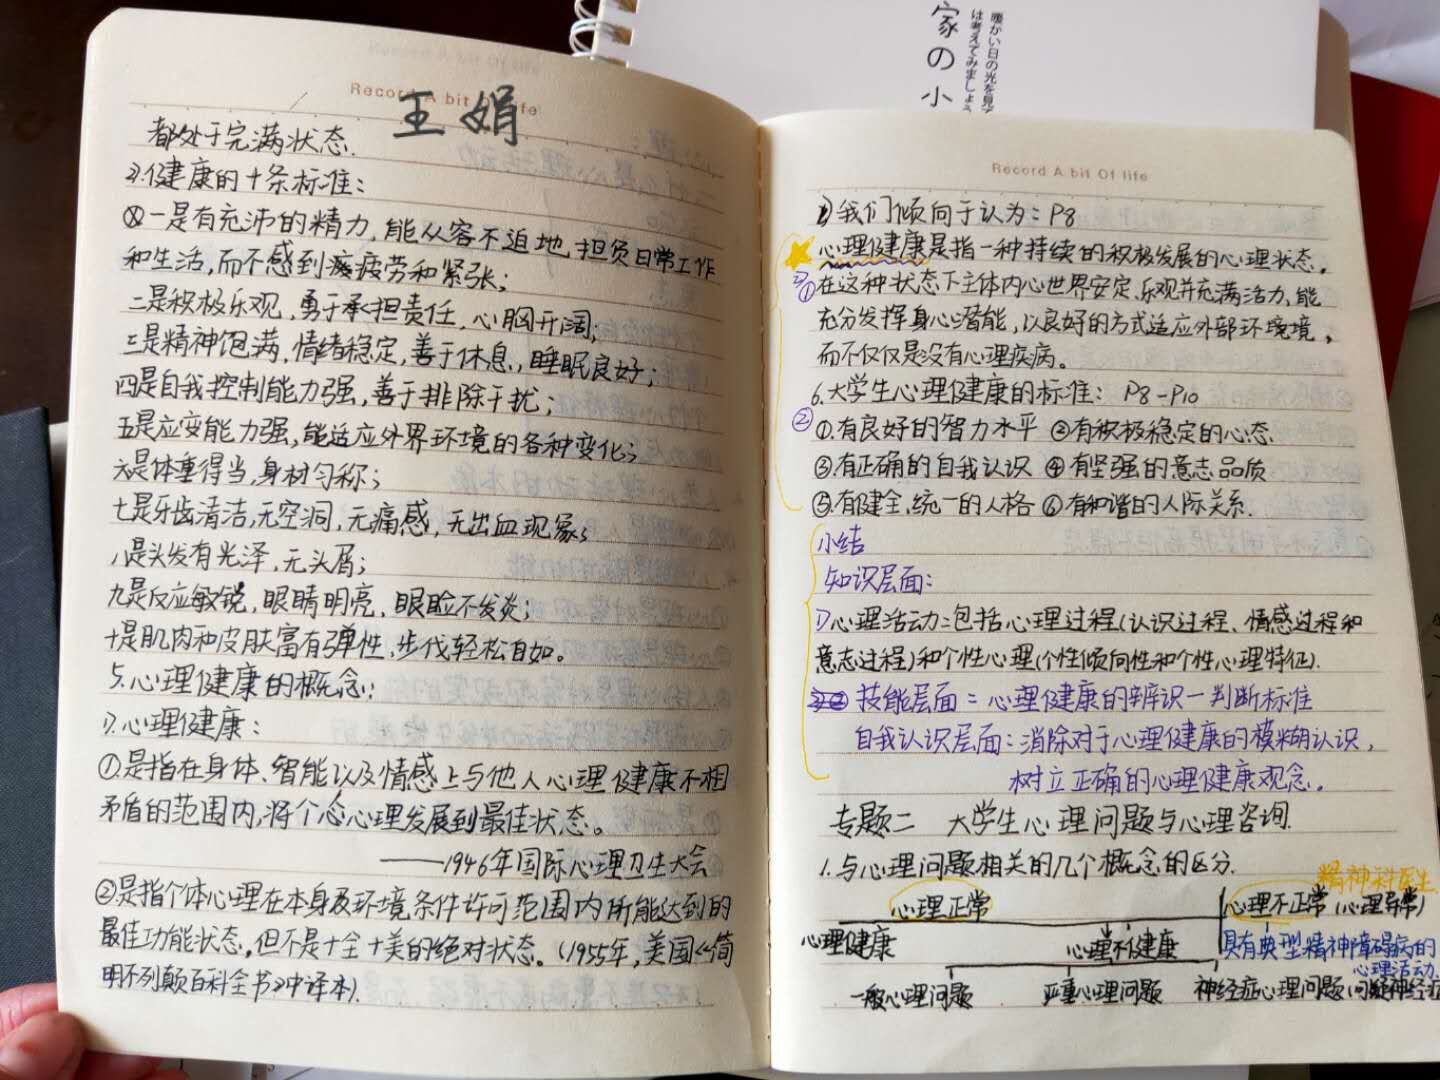 家の小
暖かい日の光を見て
は考えてみましょう
Record A bit Of life
王娟
都处于完满状态.
2).健康的十条标准:
一是有充沛的精力,能从容不迫地,担负日常工作
和生活,而不感到疲劳和紧张;
二是积极乐观,勇于承担责任,心胸开阔;
三是精神饱满,情绪稳定,善于休息,睡眠良好;
四是自我控制能力强,善于排除干扰;
五是应变能力强,能适应外界环境的各种变化;
六是体重得当,身材匀称;
七是牙齿清洁,无空洞,无痛感,无出血现象;
八是头发有光泽,无头屑;
九是反应敏锐,眼睛明亮,眼睑不发炎;
十是肌肉和皮肤富有弹性,步伐轻松自如。
5.心理健康的概念:
1).心理健康:
①.是指在身体、智能以及情感上与他人心理健康不相
矛盾的范围内,将个心理发展到最佳状态。
——1946年国际心理卫生大会
②是指个体心理在本身及环境条件许可范围内所能达到的
最佳功能状态,但不是十全十美的绝对状态。(1955年,美国《简
明不列颠百科全书》中译本).
Record A bit Of life
2)我们倾向于认为:P8
心理健康是指一种持续的积极发展的心理状态。
①在这种状态下主体内心世界安定、乐观并充满活力,能
充分发挥身心潜能,以良好的方式适应外部环境境,
而不仅仅是没有心理疾病。
6.大学生心理健康的标准: P8-P10
② ①.有良好的智力水平 ②有积极稳定的心态
③有正确的自我认识 ④有坚强的意志品质
⑤有健全,统一的人格 ⑥有和谐的人际关系.
小结
知识层面:
1)心理活动:包括心理过程(认识过程、情感过程和
意志过程)和个性心理(个性倾向性和个性心理特征).
技能层面:心理健康的辨识一判断标准
自我认识层面:消除对于心理健康的模糊认识,
树立正确的心理健康观念。
专题二 大学生心理问题与心理咨询.
1.与心理问题相关的几个概念的区分.
精神科医生.
心理正常 心理不正常(心理异常)
心理健康 心理不健康 具有典型精神障碍病的
心理活动.
一般心理问题 严重心理问题 神经症心理问题(可疑神经症